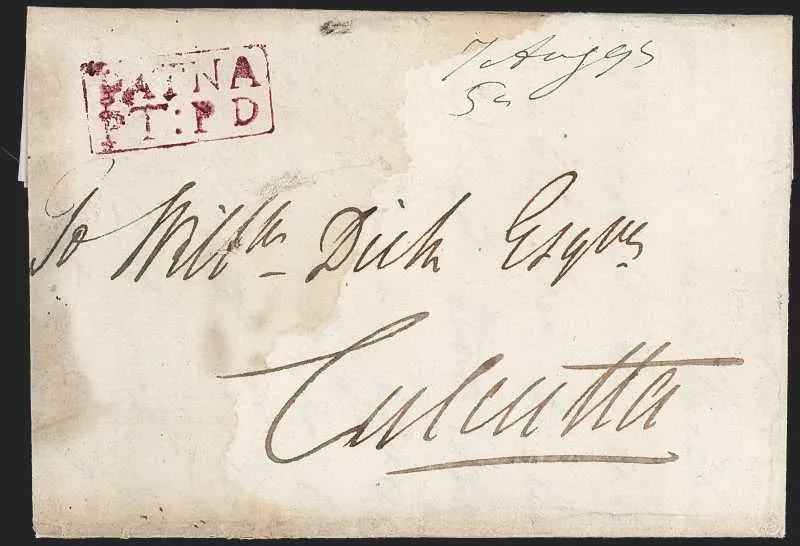 PATNA
PT:PD
7 Aug 95
To Willm Dick Esqr
Calcutta